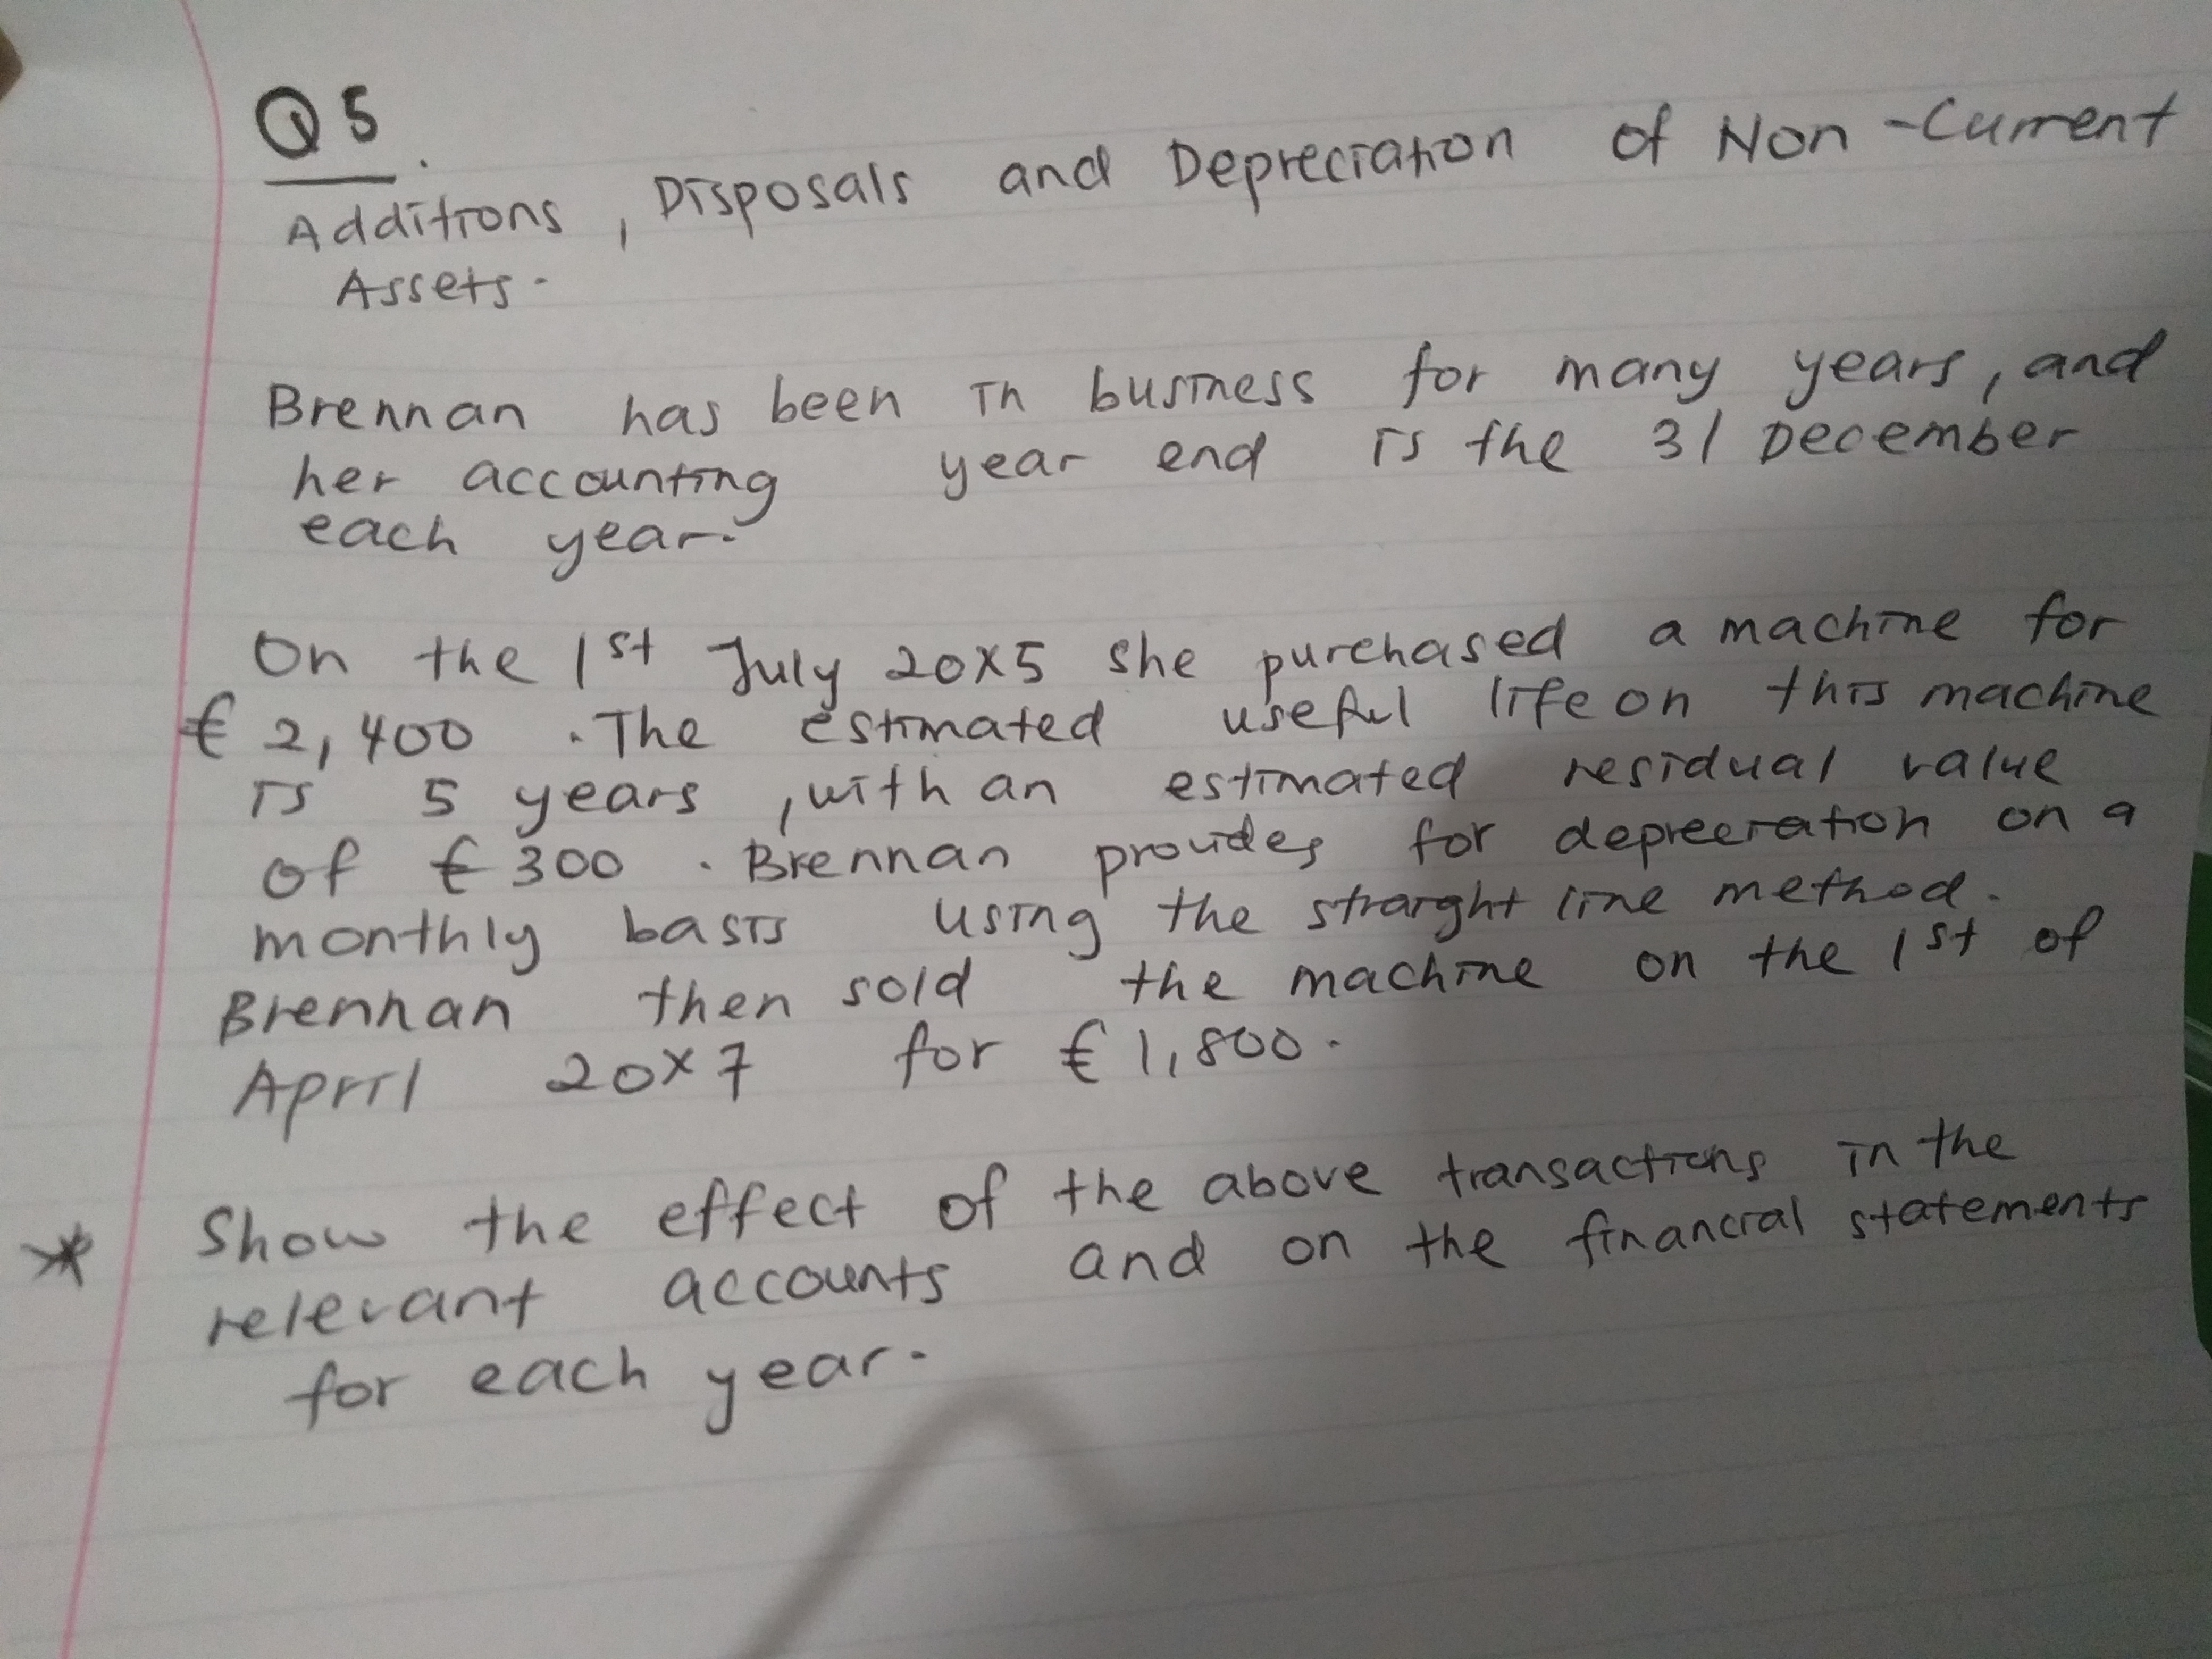 Q5.
Additions, Disposals and Depreciation of Non-Current
Assets.
Brennan has been in business for many years, and
her accounting year end is the 31 December
each year.
On the 1st July 20x5 she purchased a machine for
€ 2,400. The estimated useful life on this machine
is 5 years, with an estimated residual value
of € 300. Brennan provides for depreciation on a
monthly basis using the straight line method.
Brennan then sold the machine on the 1st of
April 20x7 for € 1,800.
* Show the effect of the above transactions in the
relevant accounts and on the financial statements
for each year.